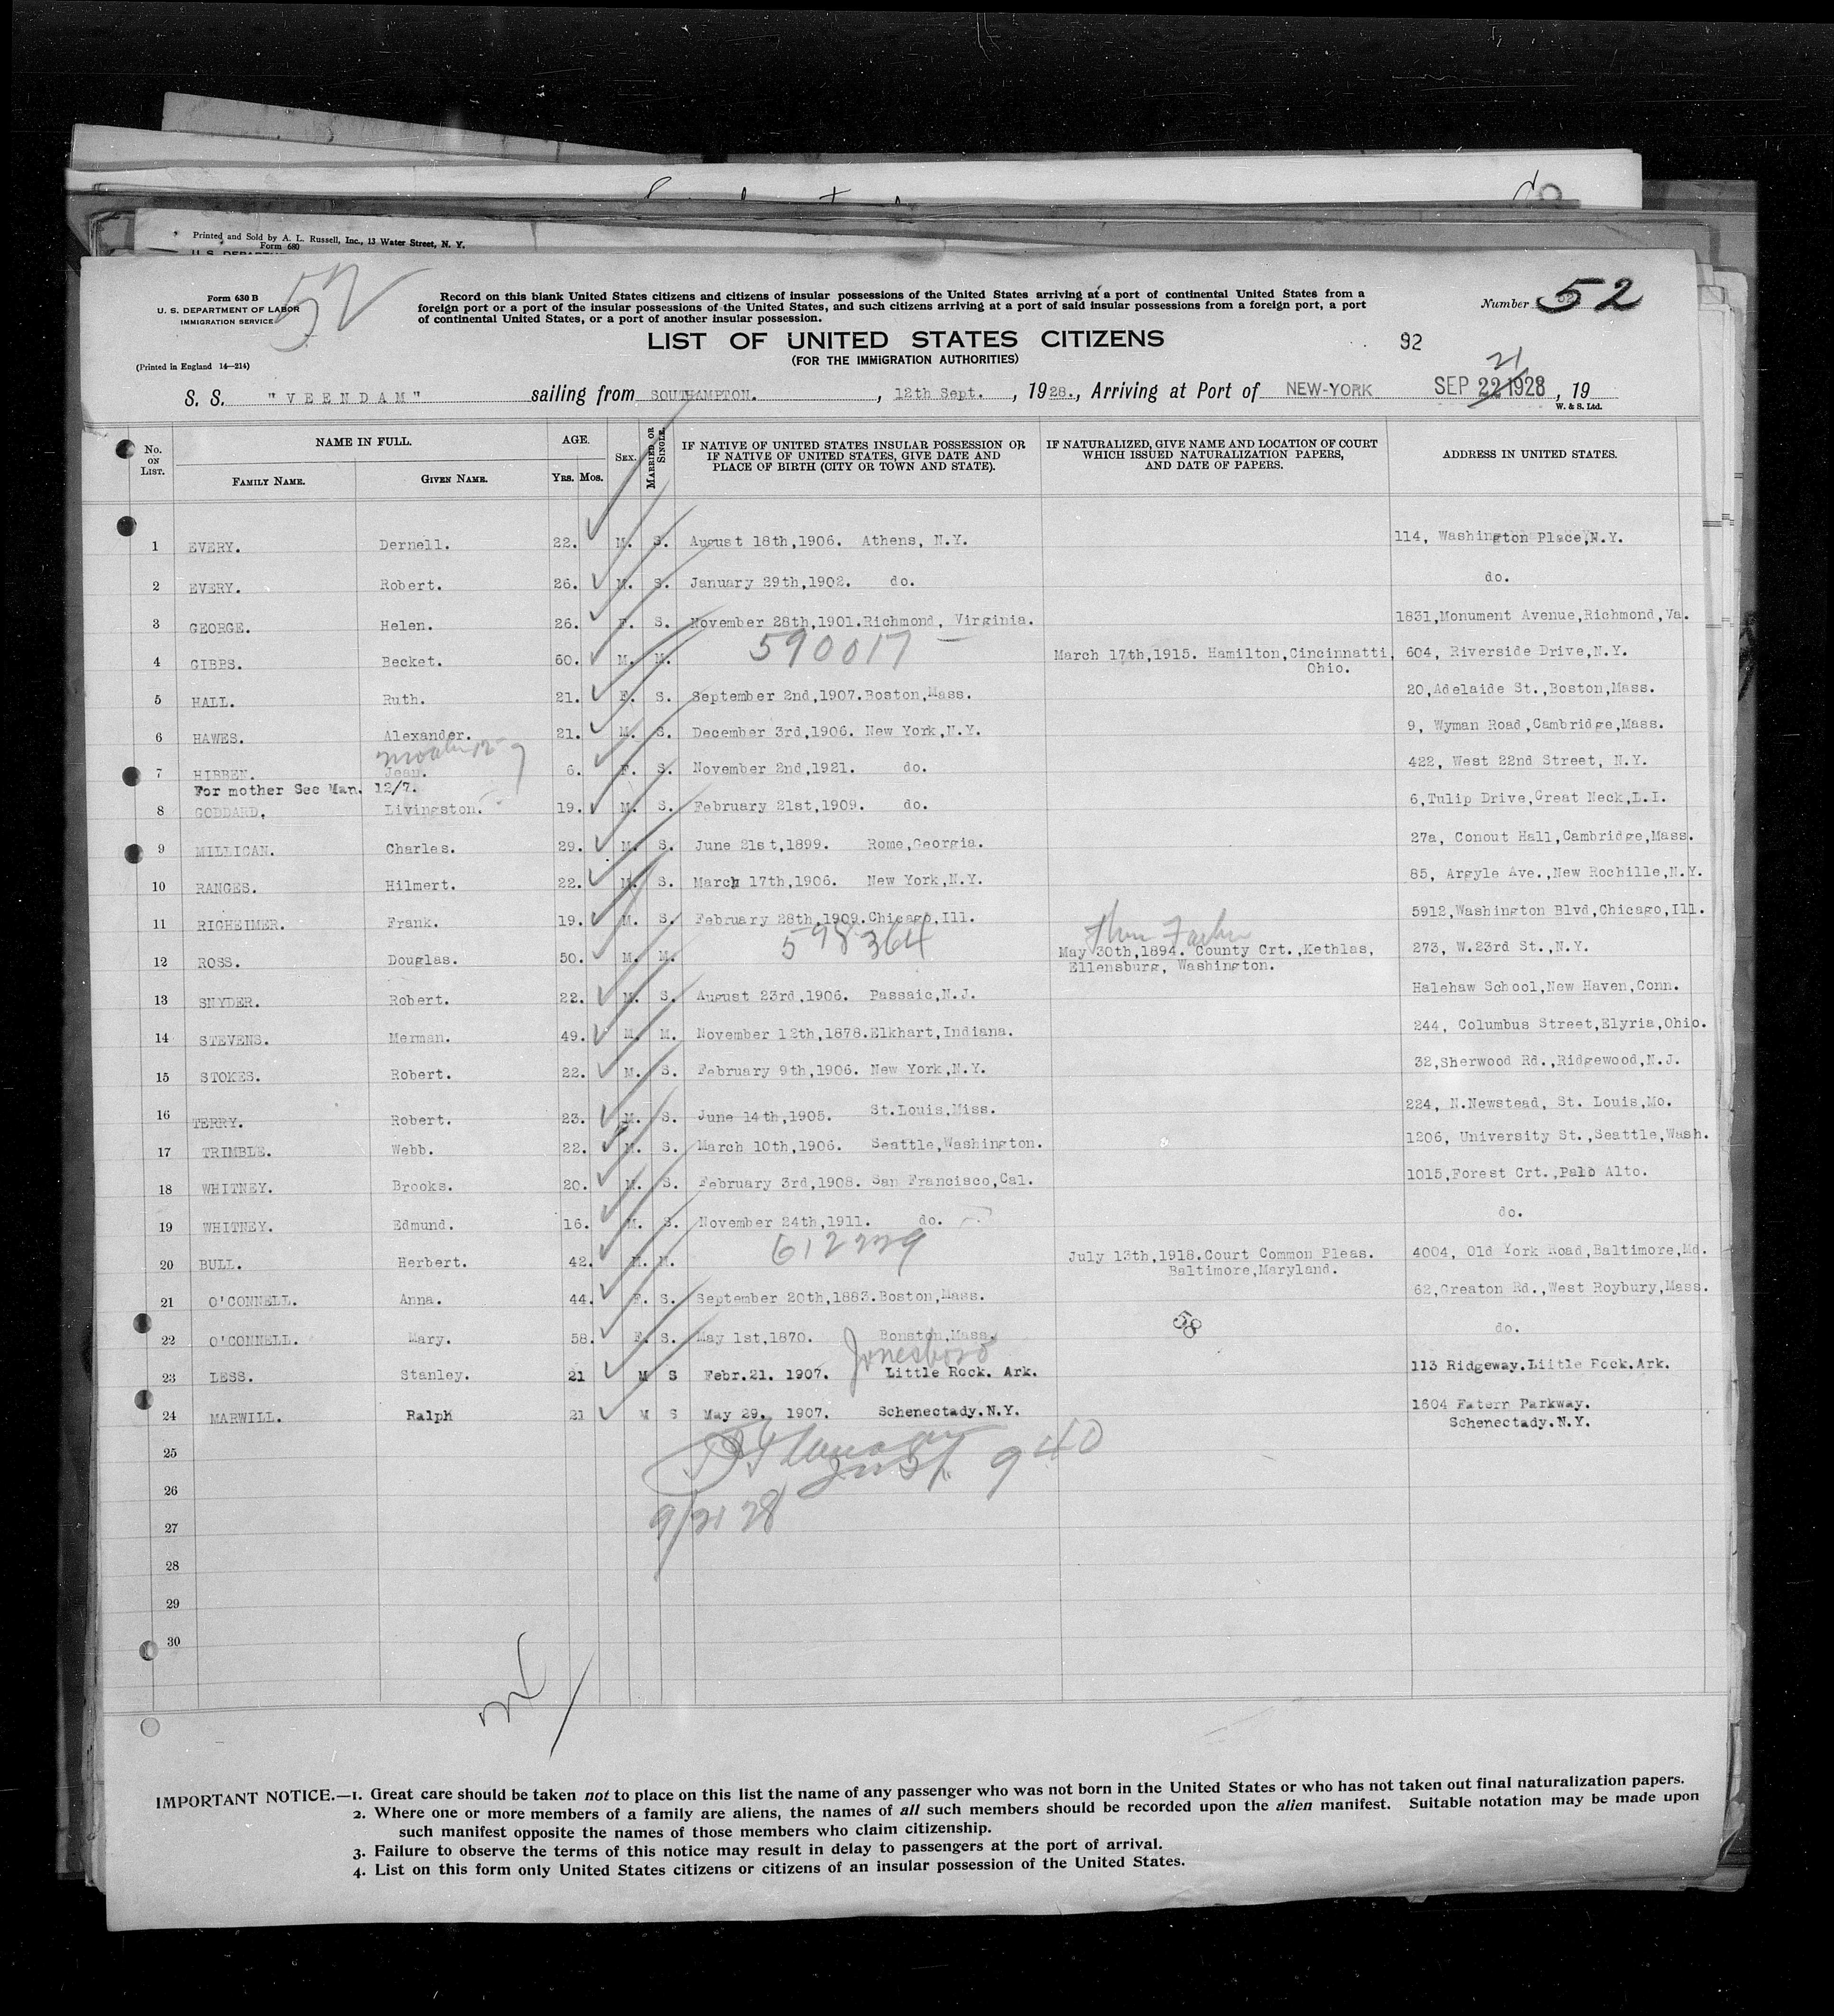 Printed and Sold by A. L. Russell, Inc., 13 Water Street, N. Y.
Form 680
52
Form 630 B
U. S. DEPARTMENT OF LABOR
IMMIGRATION SERVICE
(Printed in England 14—214)
Record on this blank United States citizens and citizens of insular possessions of the United States arriving at a port of continental United States from a
foreign port or a port of the insular possessions of the United States, and such citizens arriving at a port of said insular possessions from a foreign port, a port
of continental United States, or a port of another insular possession.
Number 52
LIST OF UNITED STATES CITIZENS
(FOR THE IMMIGRATION AUTHORITIES)
92
21
S. S. "VEENDAM" sailing from SOUTHAMPTON. , 12th Sept. , 1928., Arriving at Port of NEW-YORK SEP 22 1928 , 19
W. & S. Ltd.
No. ON LIST. NAME IN FULL. FAMILY NAME. GIVEN NAME. AGE. YRS. MOS. SEX. MARRIED OR SINGLE. IF NATIVE OF UNITED STATES INSULAR POSSESSION OR IF NATIVE OF UNITED STATES, GIVE DATE AND PLACE OF BIRTH (CITY OR TOWN AND STATE). IF NATURALIZED, GIVE NAME AND LOCATION OF COURT WHICH ISSUED NATURALIZATION PAPERS, AND DATE OF PAPERS. ADDRESS IN UNITED STATES.
1 EVERY. Dernell. 22. M. S. August 18th,1906. Athens, N.Y. 114, Washington Place,N.Y.
2 EVERY. Robert. 26. M. S. January 29th,1902. do. do.
3 GEORGE. Helen. 26. F. S. November 28th,1901.Richmond, Virginia. 1831,Monument Avenue,Richmond,Va.
4 GIBBS. Becket. 60. M. M. 590017 — March 17th,1915. Hamilton,Cincinnatti, 604, Riverside Drive,N.Y.
Ohio.
5 HALL. Ruth. 21. F. S. September 2nd,1907.Boston,Mass. 20,Adelaide St.,Boston,Mass.
6 HAWES. Alexander. 21. M. S. December 3rd,1906. New York,N.Y. 9, Wyman Road,Cambridge,Mass.
mother 12-7
7 HIBBEN. Jean. 6. F. S. November 2nd,1921. do. 422, West 22nd Street, N.Y.
For mother See Man. 12/7.
8 GODDARD, Livingston. 19. M. S. February 21st,1909. do. 6,Tulip Drive,Great Neck,L.I.
9 MILLICAN. Charles. 29. M. S. June 21st,1899. Rome,Georgia. 27a, Conout Hall,Cambridge,Mass.
10 RANGES. Hilmert. 22. M. S. March 17th,1906. New York,N.Y. 85, Argyle Ave.,New Rochille,N.Y.
11 RIGHEIMER. Frank. 19. M. S. February 28th,1909.Chicago,Ill. 5912,Washington Blvd,Chicago,Ill.
598364 Thru Father
12 ROSS. Douglas. 50. M. M. May 30th,1894. County Crt.,Kethlas, 273, W.23rd St.,N.Y.
Ellensburg, Washington.
13 SNYDER. Robert. 22. M. S. August 23rd,1906. Passaic,N.J. Halehaw School,New Haven,Conn.
14 STEVENS. Merman. 49. M. M. November 12th,1878.Elkhart,Indiana. 244, Columbus Street,Elyria,Ohio.
15 STOKES. Robert. 22. M. S. February 9th,1906. New York,N.Y. 32,Sherwood Rd.,Ridgewood,N.J.
16 TERRY. Robert. 23. M. S. June 14th,1905. St.Louis,Miss. 224, N.Newstead, St. Louis,Mo.
17 TRIMBLE. Webb. 22. M. S. March 10th,1906. Seattle,Washington. 1206, University St.,Seattle,Wash.
18 WHITNEY. Brooks. 20. M. S. February 3rd,1908. San Francisco,Cal. 1015,Forest Crt.,Palo Alto.
19 WHITNEY. Edmund. 16. M. S. November 24th,1911. do. do.
20 BULL. Herbert. 42. M. M. 612229 July 13th,1918.Court Common Pleas. 4004, Old York Road,Baltimore,Md.
Baltimore,Maryland.
21 O'CONNELL. Anna. 44. F. S. September 20th,1883.Boston,Mass. 62,Greaton Rd.,West Roybury,Mass.
22 O'CONNELL. Mary. 58. F. S. May 1st,1870. Bonston,Mass. do.
Jonesboro
23 LESS. Stanley. 21 M S Febr.21. 1907. Little Rock. Ark. 113 Ridgeway.Liitle Rock.Ark.
24 MARWILL. Ralph 21 M S May 29. 1907. Schenectady.N.Y. 1604 Fatern Parkway.
Schenectady.N.Y.
25
26
27
28
29
30
940
9/21 28
IMPORTANT NOTICE.—1. Great care should be taken not to place on this list the name of any passenger who was not born in the United States or who has not taken out final naturalization papers.
2. Where one or more members of a family are aliens, the names of all such members should be recorded upon the alien manifest. Suitable notation may be made upon
such manifest opposite the names of those members who claim citizenship.
3. Failure to observe the terms of this notice may result in delay to passengers at the port of arrival.
4. List on this form only United States citizens or citizens of an insular possession of the United States.